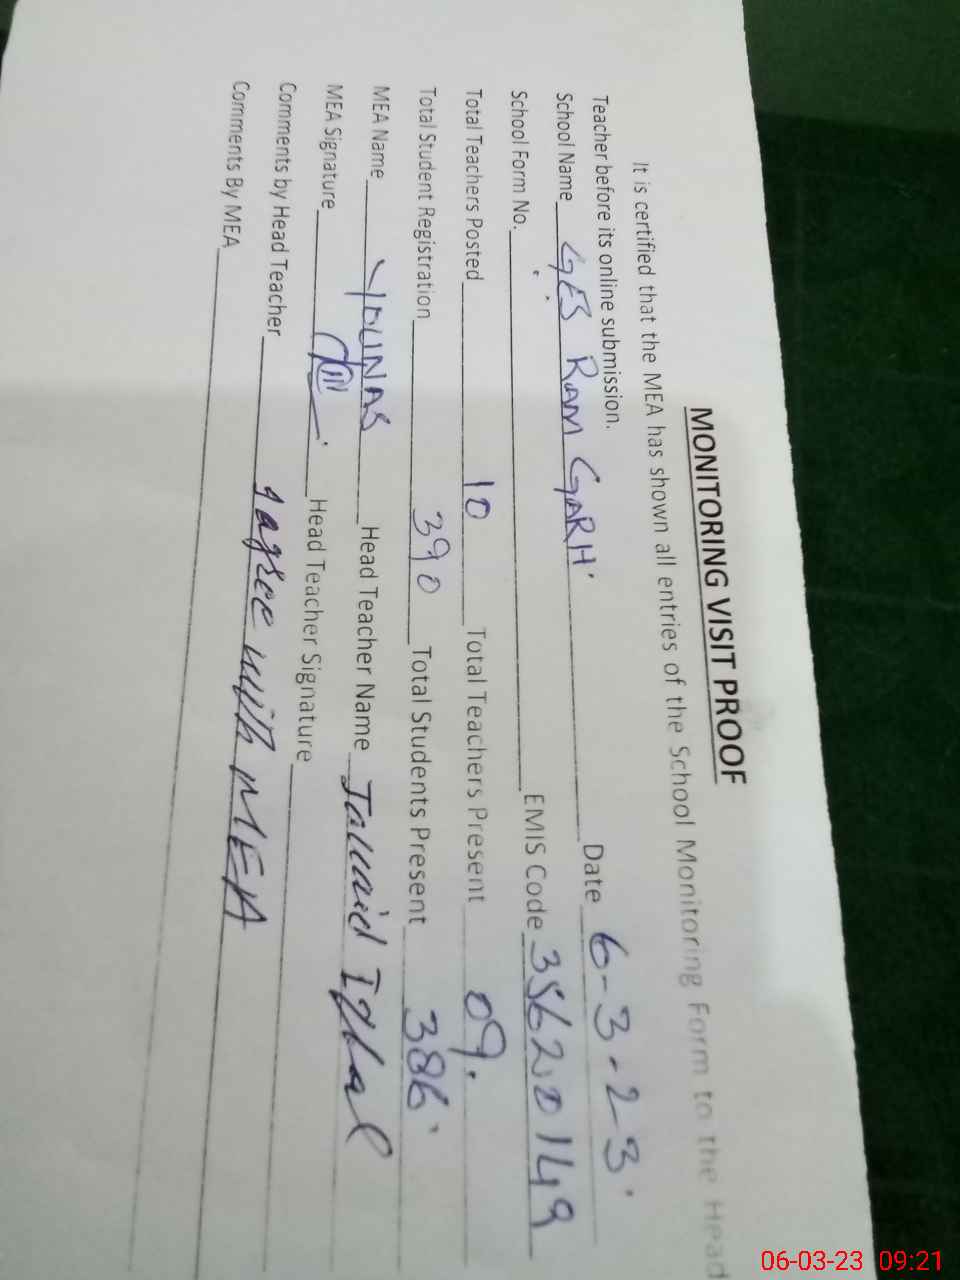 MONITORING VISIT PROOF
It is certified that the MEA has shown all entries of the School Monitoring Form to the Head
Teacher before its online submission.
School Name GES RAM GARH Date 6-3-23
School Form No. EMIS Code 35620149
Total Teachers Posted 10 Total Teachers Present 09.
Total Student Registration 390 Total Students Present 386
MEA Name YOUNAS Head Teacher Name Javaid Iqbal
MEA Signature Head Teacher Signature
Comments by Head Teacher I agree with MEA
Comments By MEA
06-03-23 09:21